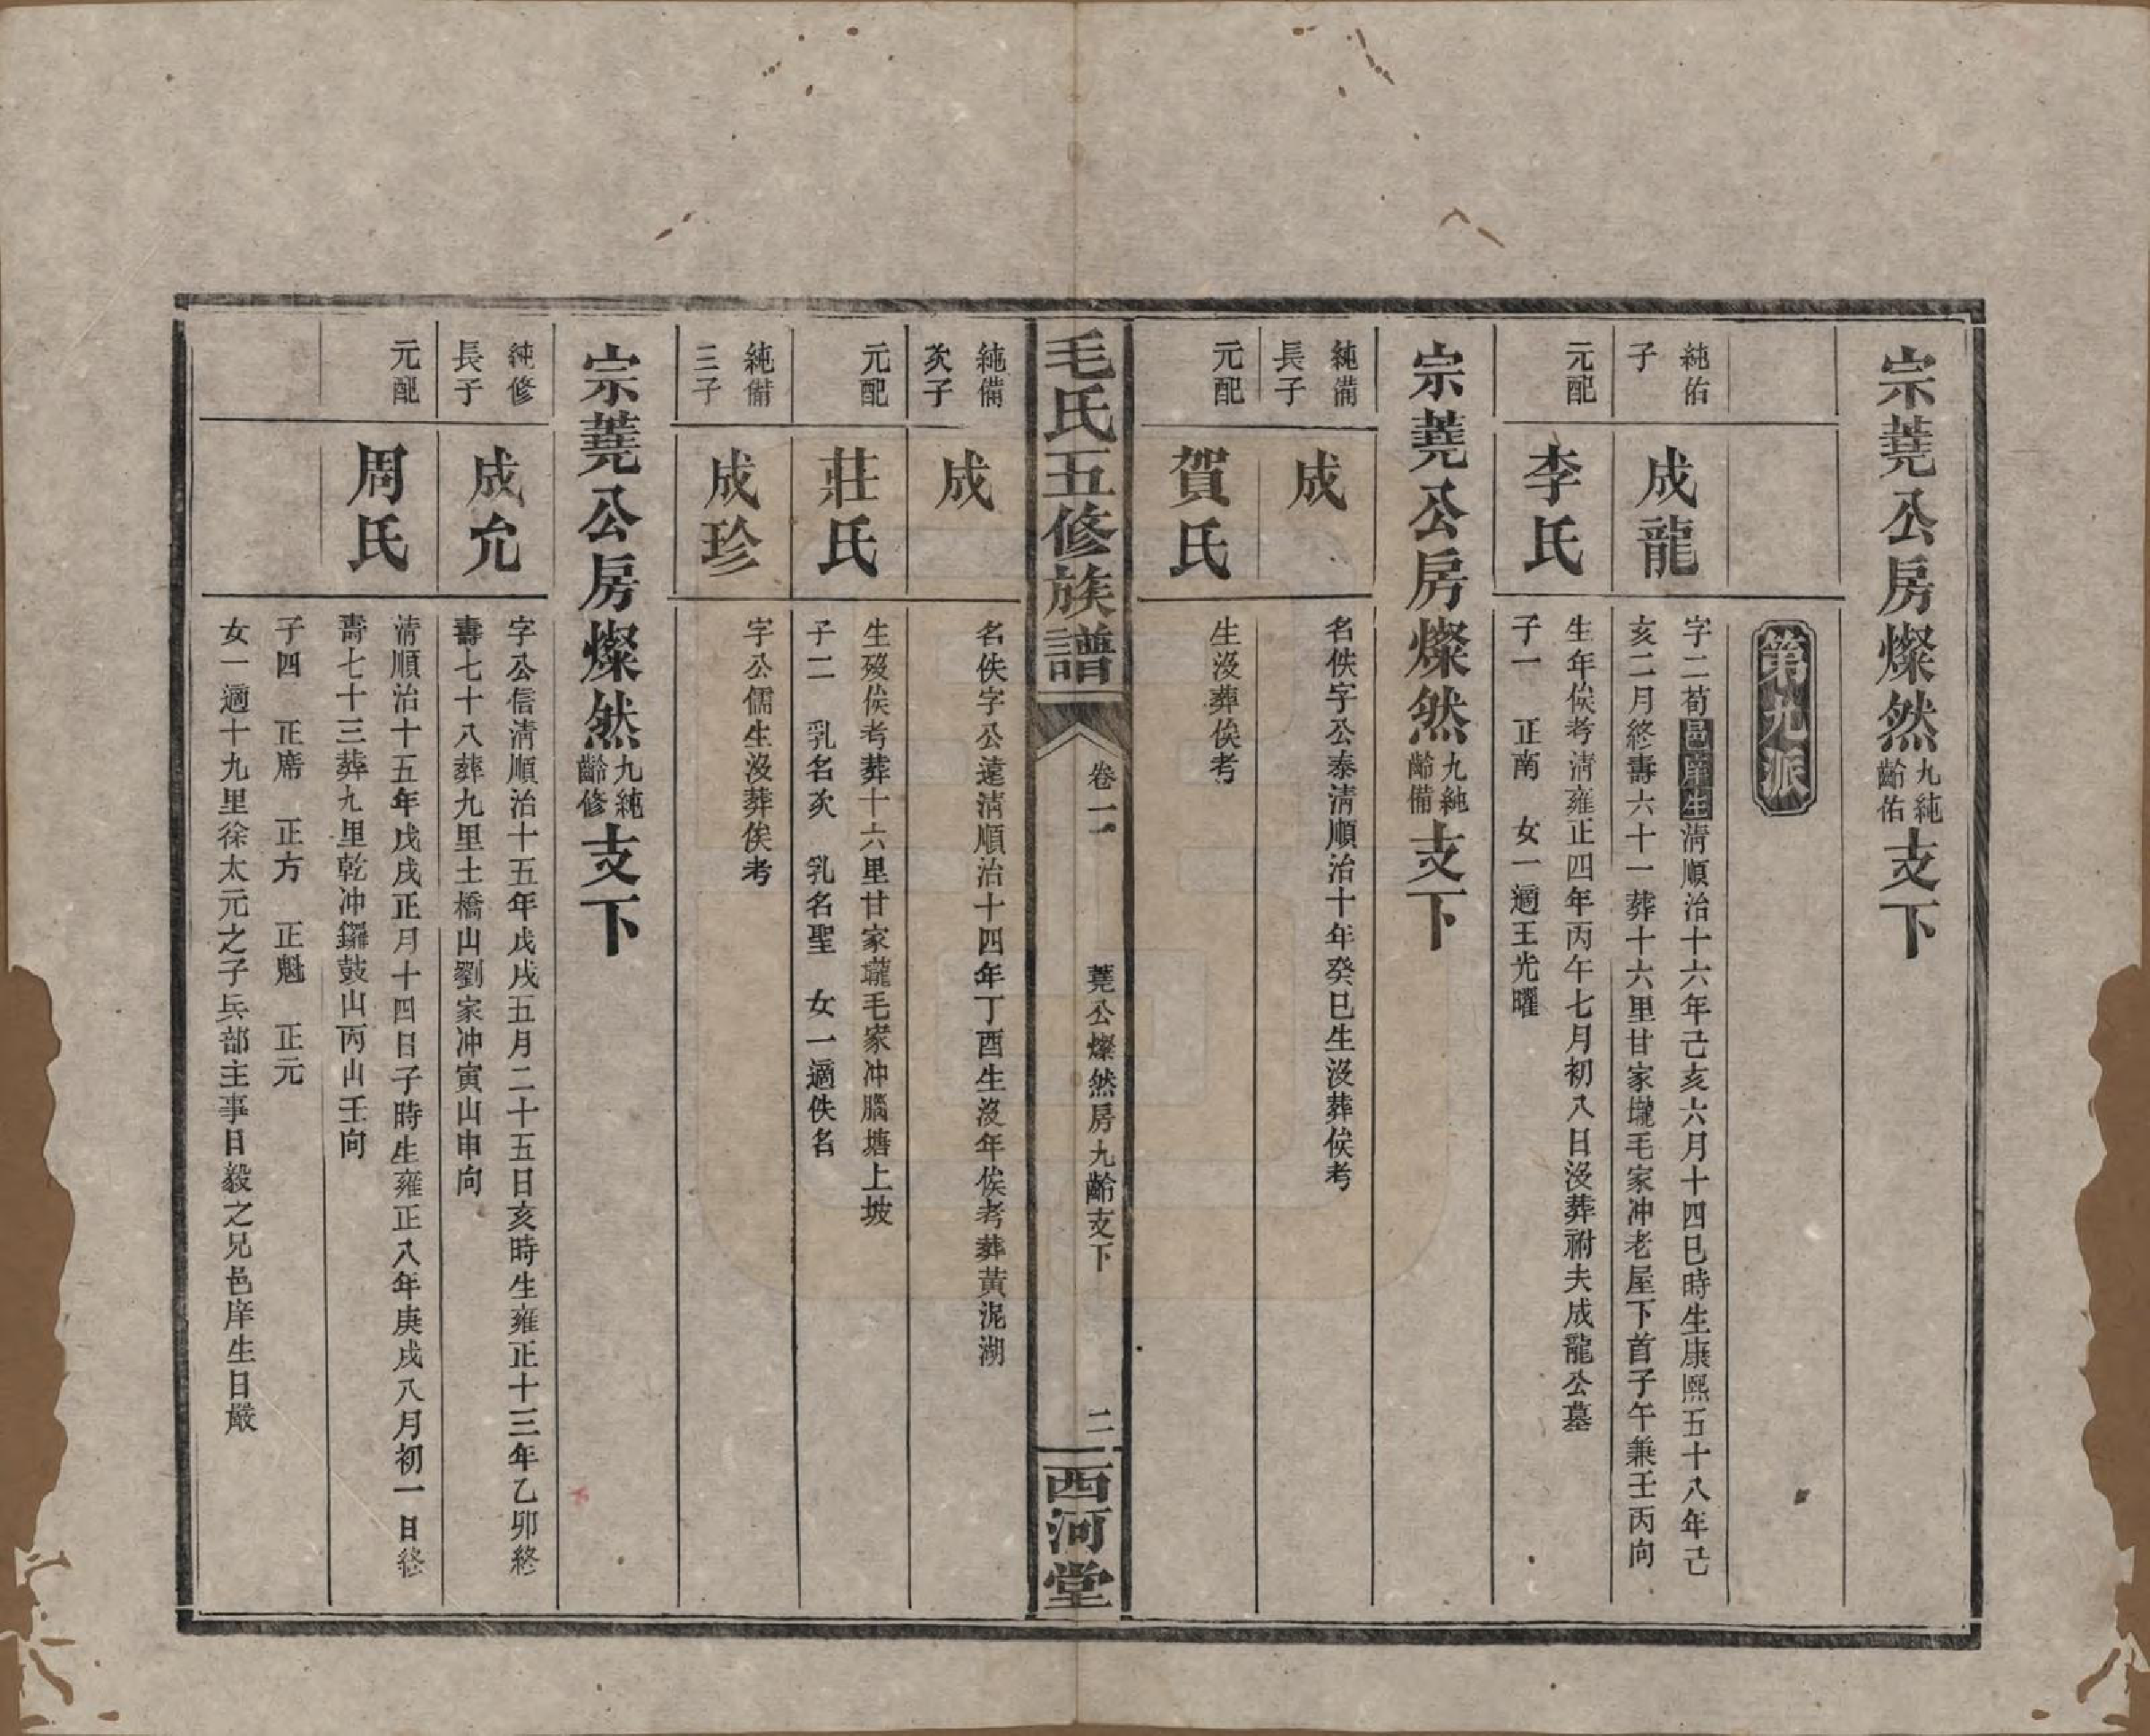 宗蕘公房燦然九齡純佑支下
第九派
純佑子
成龍
字二荀邑庠生清順治十六年己亥六月十四巳時生康熙五十八年己
亥二月終壽六十一葬十六里甘家壠毛家冲老屋下首子午兼壬丙向
元配
李氏
生年俟考清雍正四年丙午七月初八日沒葬祔夫成龍公墓
子一　正南　女一適王光曜
宗蕘公房燦然九齡純備支下
純備長子
成
名佚字公泰清順治十年癸巳生沒葬俟考
元配
賀氏
生沒葬俟考
毛氏五修族譜
卷二
蕘公燦然房九齡支下
二
西河堂
純備次子
成
名佚字公遠清順治十四年丁酉生沒年俟考葬黃泥湖
元配
莊氏
生歿俟考葬十六里甘家壠毛家冲腦塘上坡
子二　乳名次　乳名聖　女一適佚名
純備三子
成珍
字公儒生沒葬俟考
宗蕘公房燦然九齡純修支下
純修長子
成允
字公信清順治十五年戊戌五月二十五日亥時生雍正十三年乙卯終
壽七十八葬九里土橋山劉家冲寅山申向
元配
周氏
清順治十五年戊戌正月十四日子時生雍正八年庚戌八月初一日終
壽七十三葬九里乾冲鑼鼓山丙山壬向
子四　正席　正方　正魁　正元
女一適十九里徐太元之子兵部主事日毅之兄邑庠生日嚴